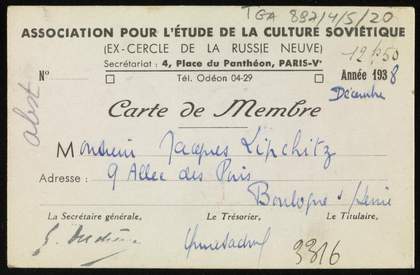 TGA 882/4/5/20
ASSOCIATION POUR L'ÉTUDE DE LA CULTURE SOVIÉTIQUE
(EX-CERCLE DE LA RUSSIE NEUVE)
12f50
Secrétariat : 4, Place du Panthéon, PARIS-Vᵉ
N° Tél. Odéon 04-29 Année 1938
Décembre
Carte de Membre
Monsieur Jacques Lipchitz
Adresse : 9 Allée des Pins
Boulogne s/ Seine
La Secrétaire générale, Le Trésorier, Le Titulaire,
3316